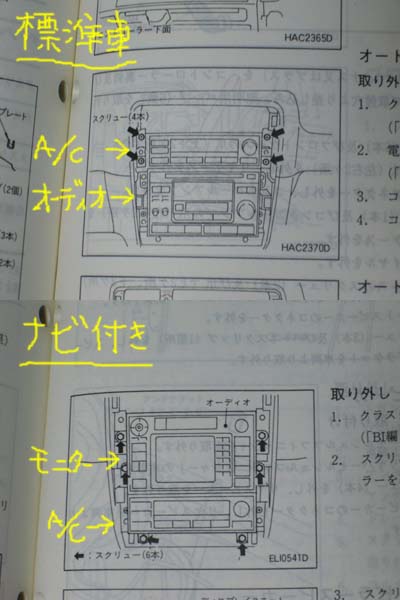 標準車
ーラー下面
HAC2365D
プレート
(2個)
3本)
2本)
スクリュー(4本)
A/C
オーディオ
HAC2370D
オート
取り外
1. ク
(「
2. 電
(「
3. コ
4. コ
オート
ナビ付き
オーディオ
モニター
A/C
←：スクリュー(6本)
ELI0541D
取り外し
1. クラス
(「BI編
2. スクリ
ラーを
3. スクリ